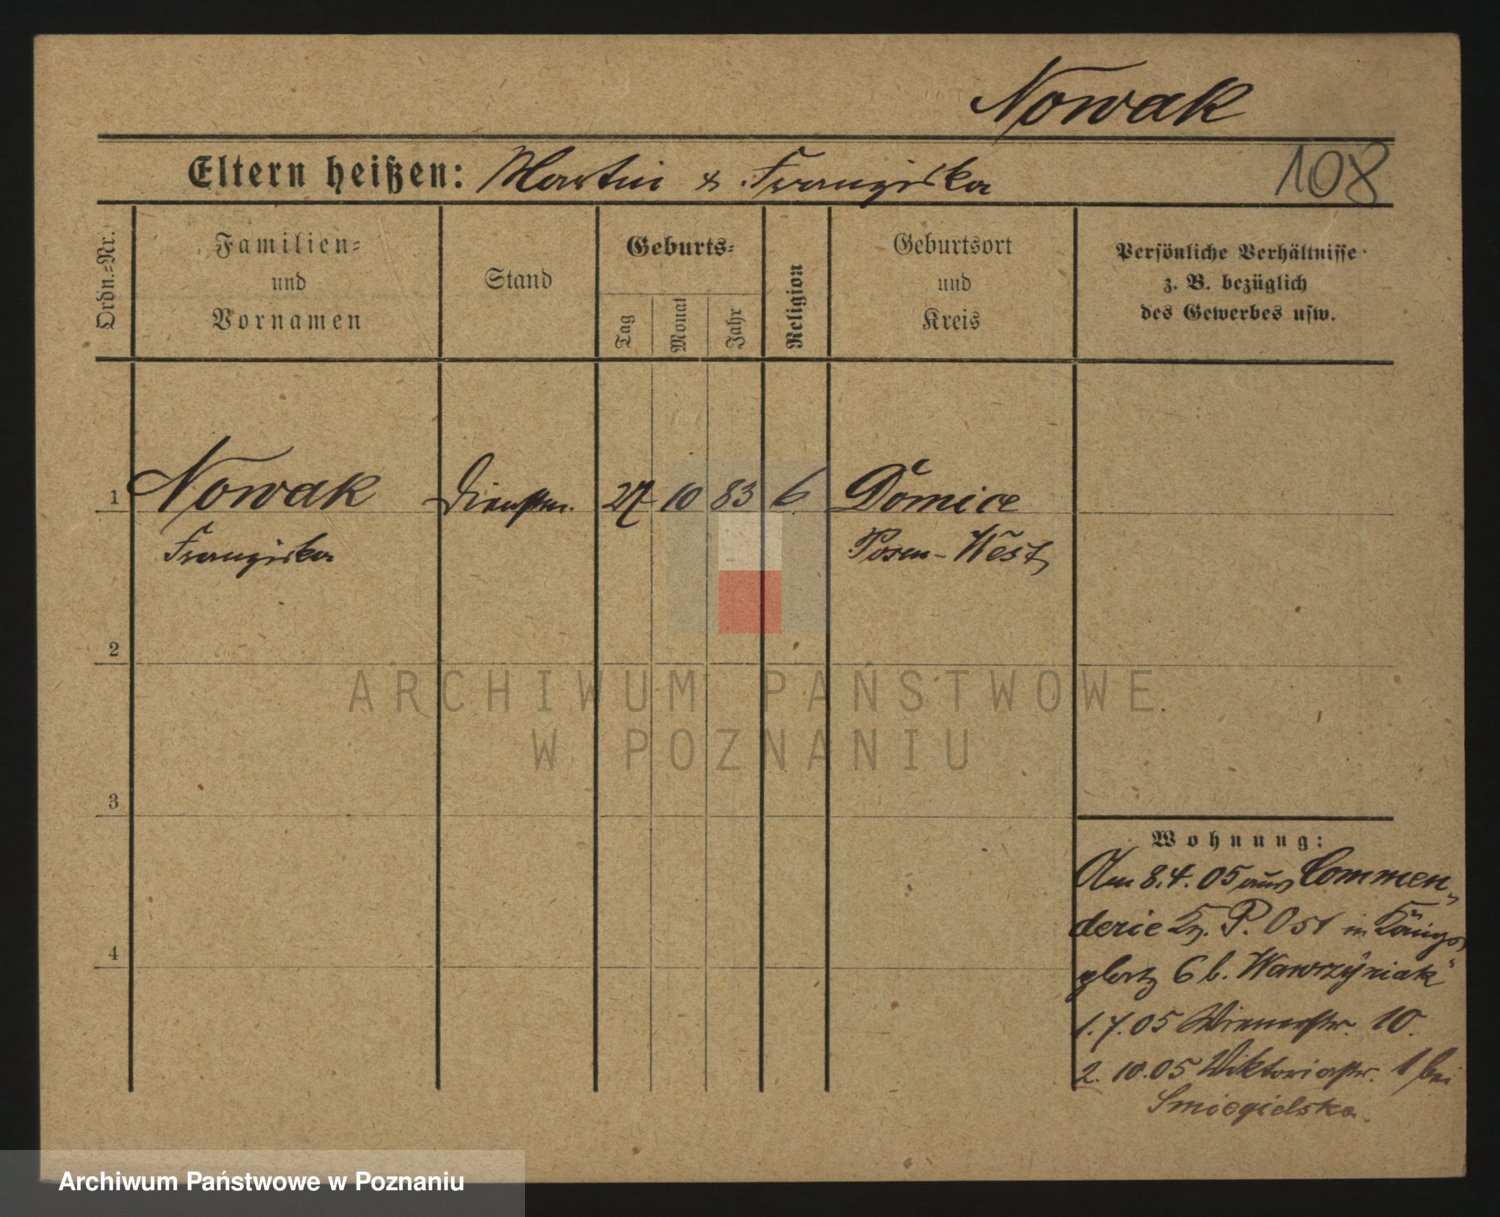 Nowak
Eltern heißen: Martin & Franziska
108
Ordn.=Nr.
Familien=
und
Vornamen
Stand
Geburts=
Tag
Monat
Jahr
Religion
Geburtsort
und
Kreis
Persönliche Verhältnisse
z. B. bezüglich
des Gewerbes usw.
1 Nowak Dienstm. 27 10 83 6 Domice
Franziska Posen-West
2
ARCHIWUM PAŃSTWOWE
W POZNANIU
3
Wohnung:
Am 8.4.05 aus Commen
derie Kr. P. Ost in Königs
platz 6 b. Wawrzyniak
1.7.05 Wienerstr. 10.
2.10.05 Viktoriastr. 1 bei
Smiegielska.
4
Archiwum Państwowe w Poznaniu